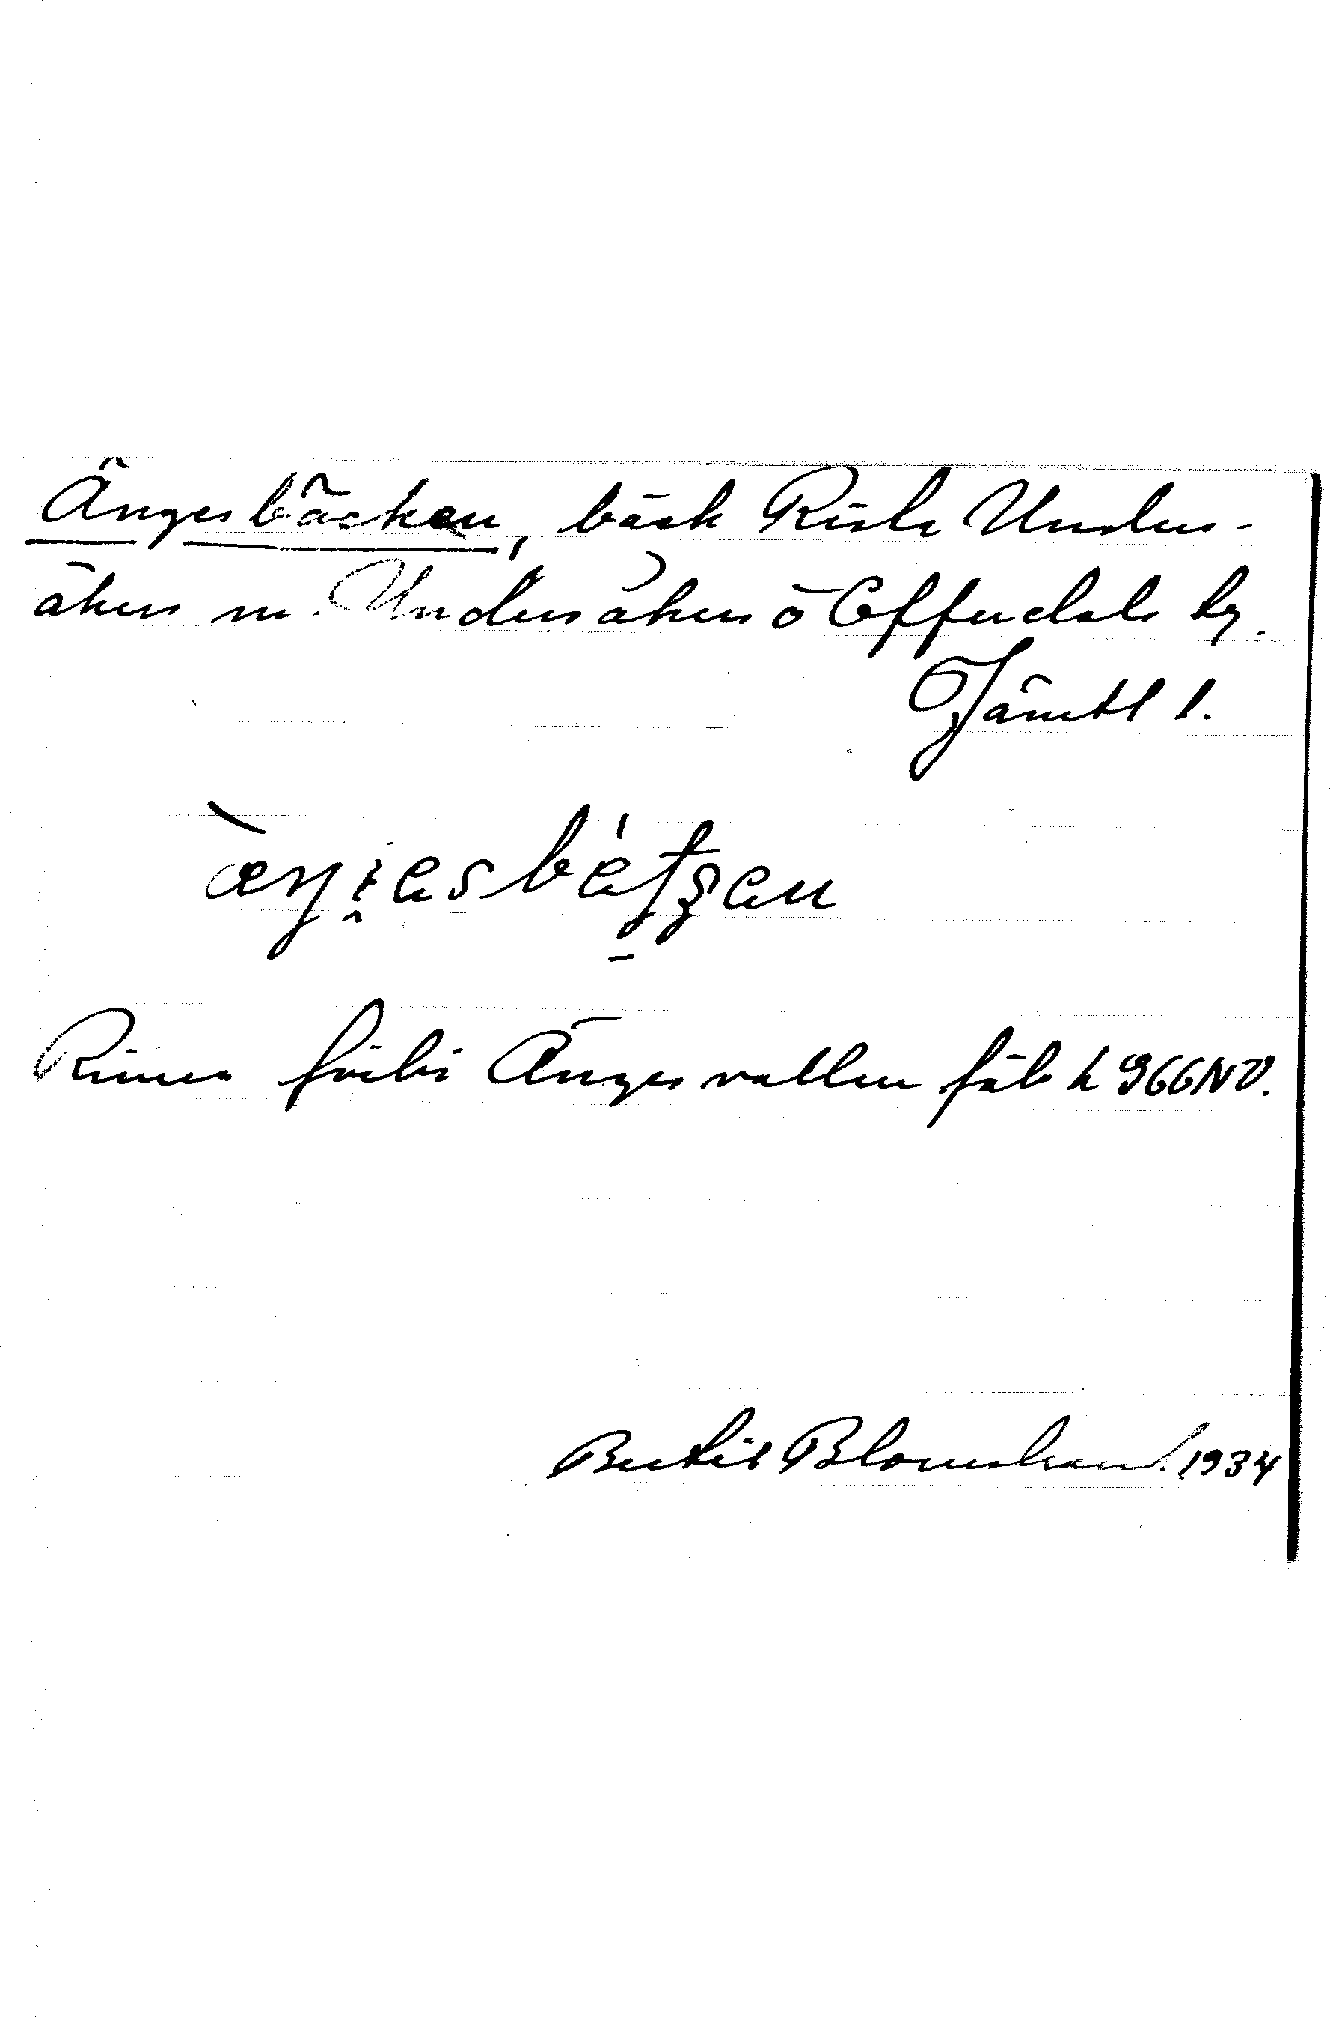 Ängesbäcken, bäck Rista Unders-
åkers sn. Undersåkers o Offerdals tg.
Jämtl l.
æŋ̀i̯esbétʂen
Rinner förbi Ängesvallen fäb h 966NV.
Bertil Blomstrand. 1934